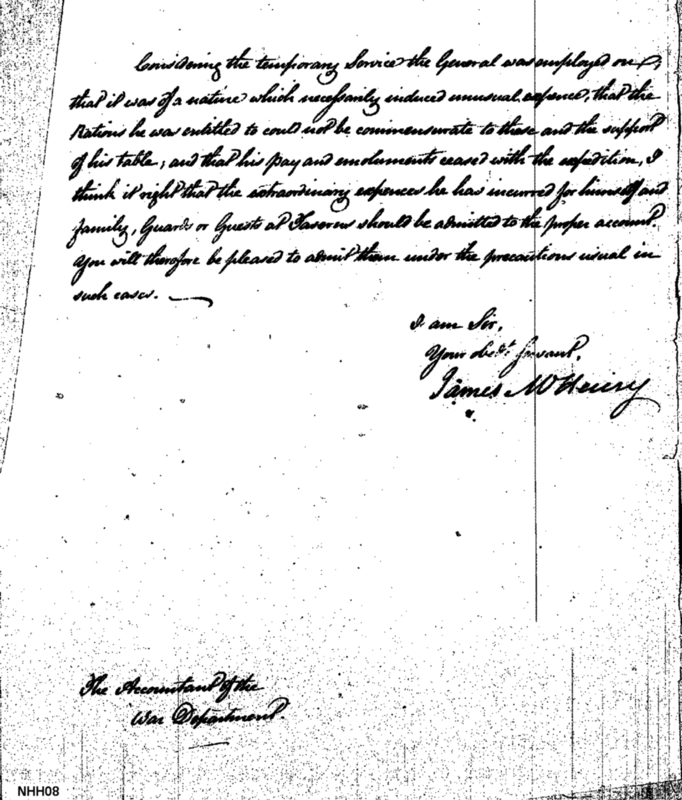 Considering the temporary Service the General was employed on,
that it was of a nature which necessarily induced unusual expence, that the
Rations he was entitled to could not be commensurate to these and the support
of his table; and that his pay and emoluments ceased with the expedition, I
think it right that the extraordinary expences he has incurred for himself and
family, Guards or Guests at Taverns should be admitted to the proper account.
You will therefore be pleased to admit them under the precautions usual in
such cases.
I am Sir,
Your obedt. servant,
James McHenry
The Accountant of the
War Department.
NHH08